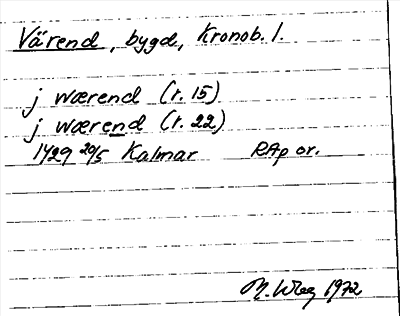 Värend, bygd, Kronob. l.
j wærend (r. 15)
j wærend (r. 22)
1429 20/5 Kalmar RAp or.
M. 1972